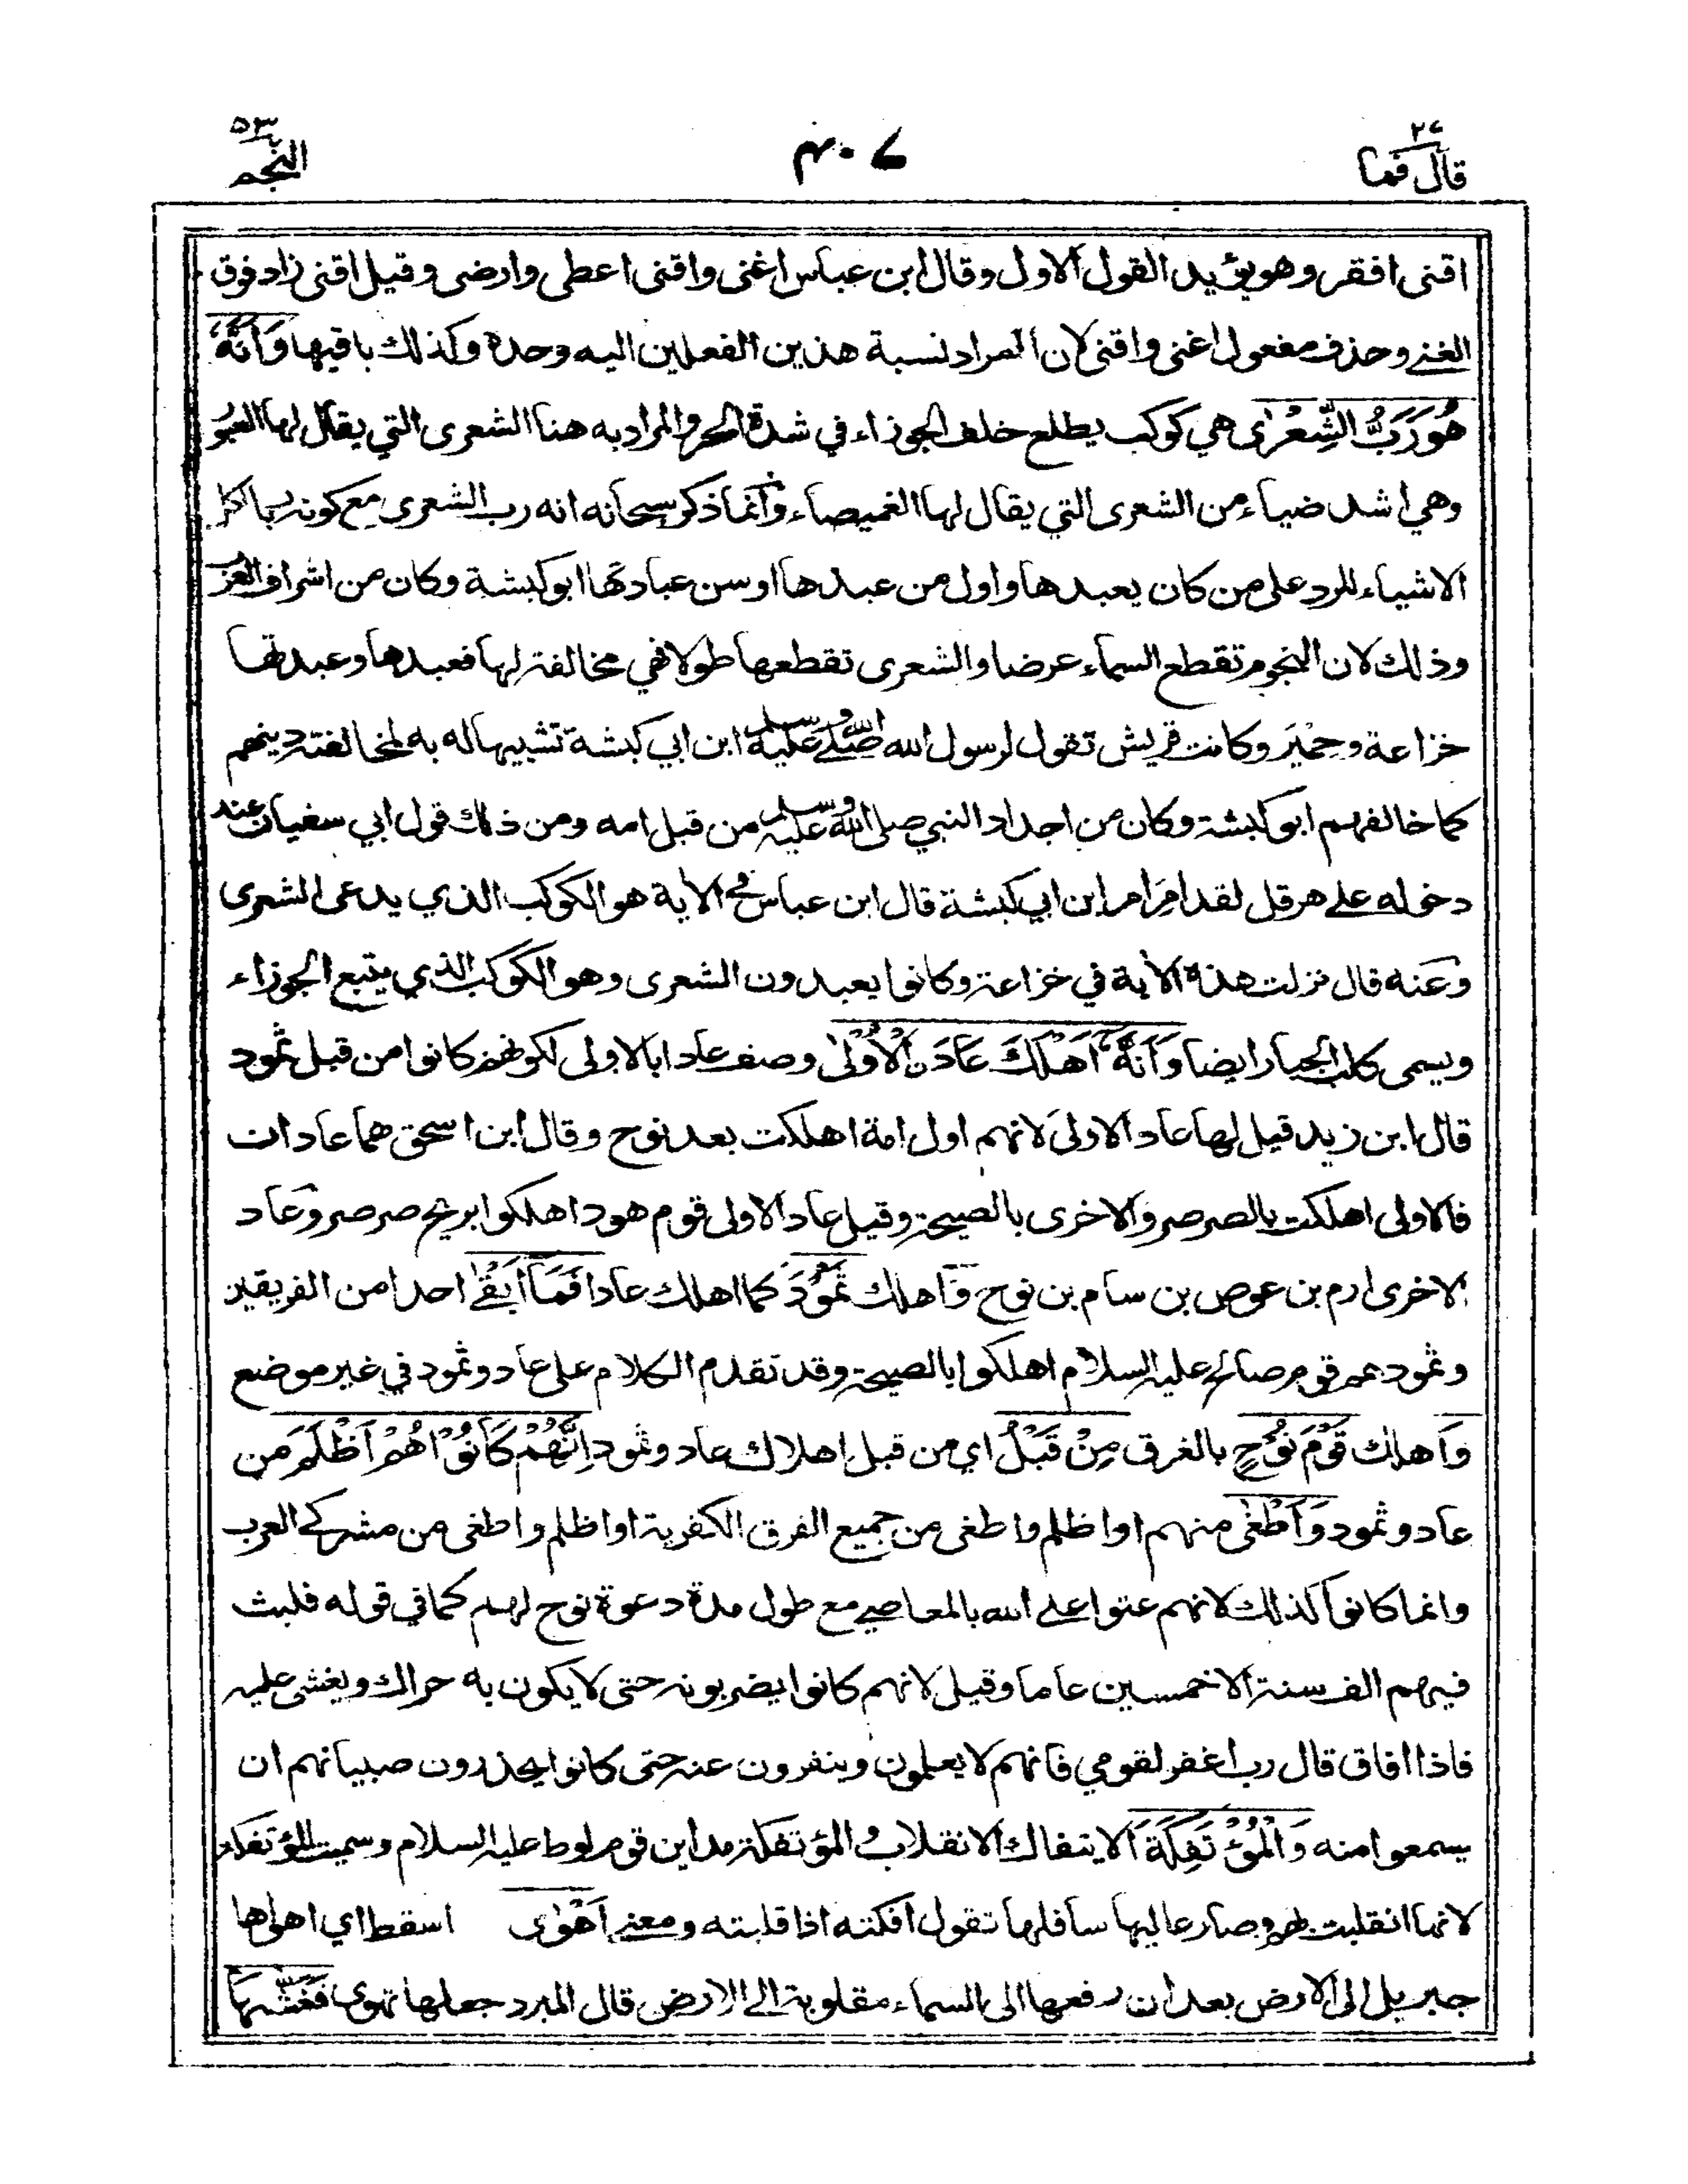 ٢٧
قال فما
٤٠٧
٥٣
النجم
اقنى افقر وهو يؤيد القول الاول وقال ابن عباس اغنى واقنى اعطى وارضى وقيل اقنى زاد فوق
الغنے وحذف مفعول اغنى واقنى لان المراد نسبة هذين الفعلين اليه وحده وكذلك باقيها وَاَنَّهٗ
هُوَ رَبُّ الشِّعْرٰى هي كوكب يطلع خلف الجوزاء في شدة الحر والمراد به هنا الشعرى التي يقال لها العبور
وهي اشد ضياء من الشعرى التي يقال لها الغميصاء وانما ذكر سبحانه انه رب الشعرى مع كونه ربا لكل
الاشياء للرد على من كان يعبدها واول من عبدها او سن عبادتها ابو كبشة وكان من اشراف العرب
وذلك لان النجوم تقطع السماء عرضا والشعرى تقطعها طولا فهي مخالفة لها فعبدها وعبدتها
خزاعة وحِمْيَر وكانت قريش تقول لرسول الله صلى الله عليه وسلم ابن ابي كبشة تشبيها له به لمخالفته دينهم
كما خالفهم ابو كبشة وكان من اجداد النبي صلى الله عليه وسلم من قبل امه ومن ذلك قول ابي سفيان عند
دخوله علے هرقل لقد امِرَ امر ابن ابي كبشة قال ابن عباس في الاية هو الكوكب الذي يدعى الشعرى
وعنه قال نزلت هذه الاية في خزاعة وكانوا يعبدون الشعرى وهو الكوكب الذي يتبع الجوزاء
ويسمى كلب الجبار ايضا وَاَنَّهٗٓ اَهْلَكَ عَادَ نِ الْاُوْلٰى وصف عادا بالاولى لكونهم كانوا من قبل ثمود
قال ابن زيد قيل لها عاد الاولى لانهم اول امة اهلكت بعد نوح وقال ابن اسحق هما عادان
فالاولى اهلكت بالصرصر والاخرى بالصيحة وقيل عاد الاولى قوم هود اهلكوا بريح صرصر وعاد
الاخرى ارم بن عوص بن سام بن نوح وَ اهلك ثَمُوْدَ كما اهلك عادا فَمَآ اَبْقٰى احدا من الفريقين
وثمود هم قوم صالح عليه السلام اهلكوا بالصيحة وقد تقدم الكلام على عاد وثمود في غير موضع
وَ اهلك قَوْمَ نُوْحٍ بالغرق مِنْ قَبْلُ اي من قبل اهلاك عاد وثمود اِنَّهُمْ كَانُوْا هُمْ اَظْلَمَ من
عاد وثمود وَاَطْغٰى منهم او اظلم واطغى من جميع الفرق الكفرية او اظلم واطغى من مشركے العرب
وانما كانوا كذلك لانهم عتوا علے الله بالمعاصے مع طول مدة دعوة نوح لهم كما في قوله فلبث
فيهم الف سنة الا خمسين عاما وقيل لانهم كانوا يضربونه حتى لا يكون به حراك ويغشى عليه
فاذا افاق قال رب اغفر لقومي فانهم لا يعلمون وينفرون عنه حتى كانوا يحذرون صبيانهم ان
يسمعوا منه وَالْمُؤْتَفِكَةَ الايتفاك الانقلاب والمؤتفكة مداين قوم لوط عليه السلام وسميت المؤتفكة
لانها انقلبت بهم وصار عاليها سافلها تقول افكته اذا قلبته ومعنے اَهْوٰى اسقط اي اهواها
جبريل الى الارض بعد ان رفعها الى السماء مقلوبة الے الارض قال المبرد جعلها تهوي فَغَشّٰىهَا